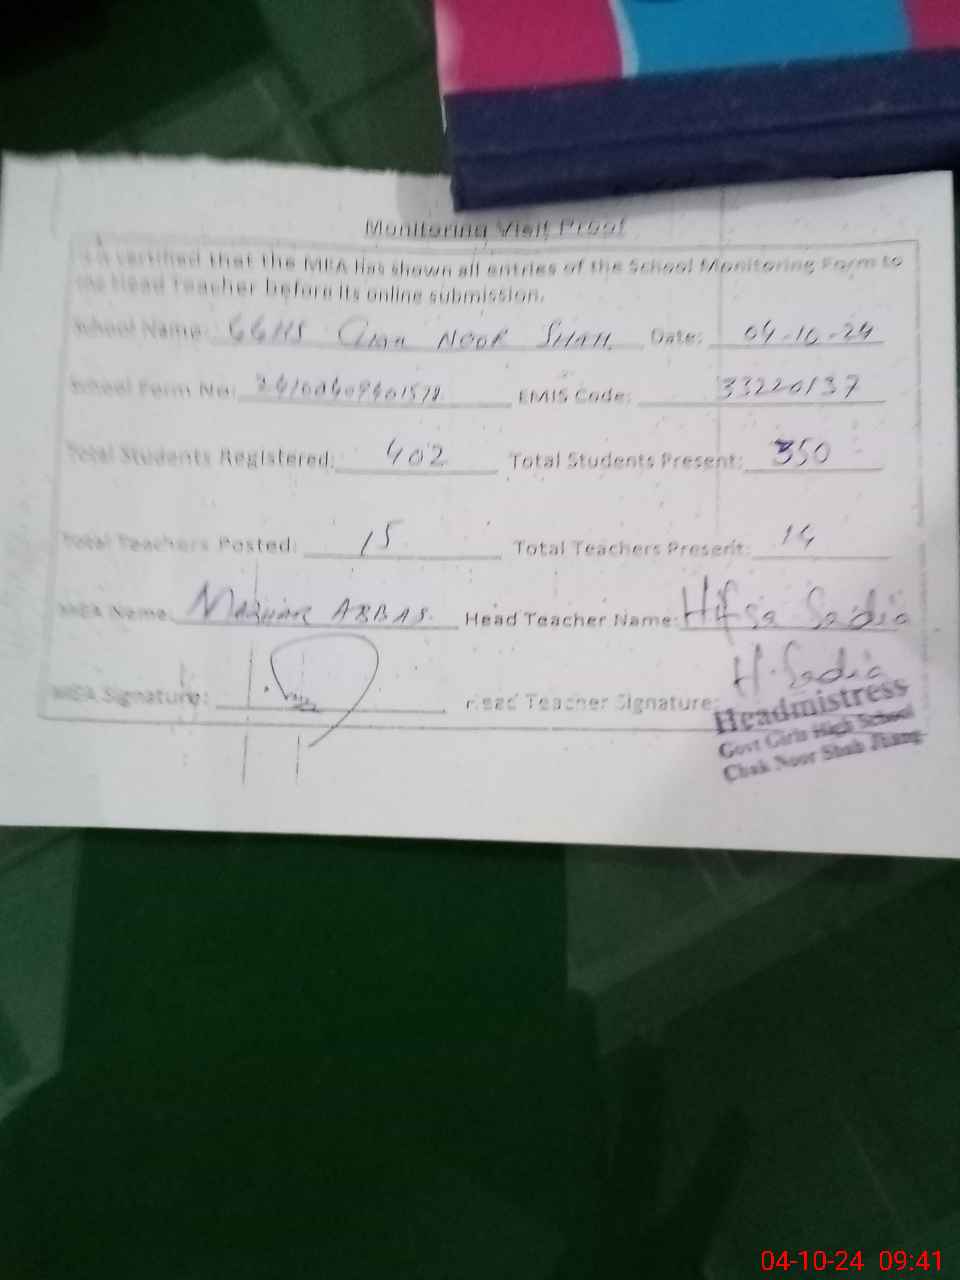 Monitoring Visit Proof
is certified that the MEA has shown all entries of the School Monitoring Form to
the Head Teacher before its online submission.
School Name: GGHS Chak NOOR SHAH Date: 04-10-24
School Form No: EMIS Code: 33220137
Total Students Registered: 402 Total Students Present: 350
Total Teachers Posted: 15 Total Teachers Present: 14
MEA Name: ABBAS. Head Teacher Name: Hifsa Sadia
MEA Signature: Head Teacher Signature: H.Sadia
Headmistress
Govt Girls High School
Chak Noor Shah Jhang
04-10-24 09:41